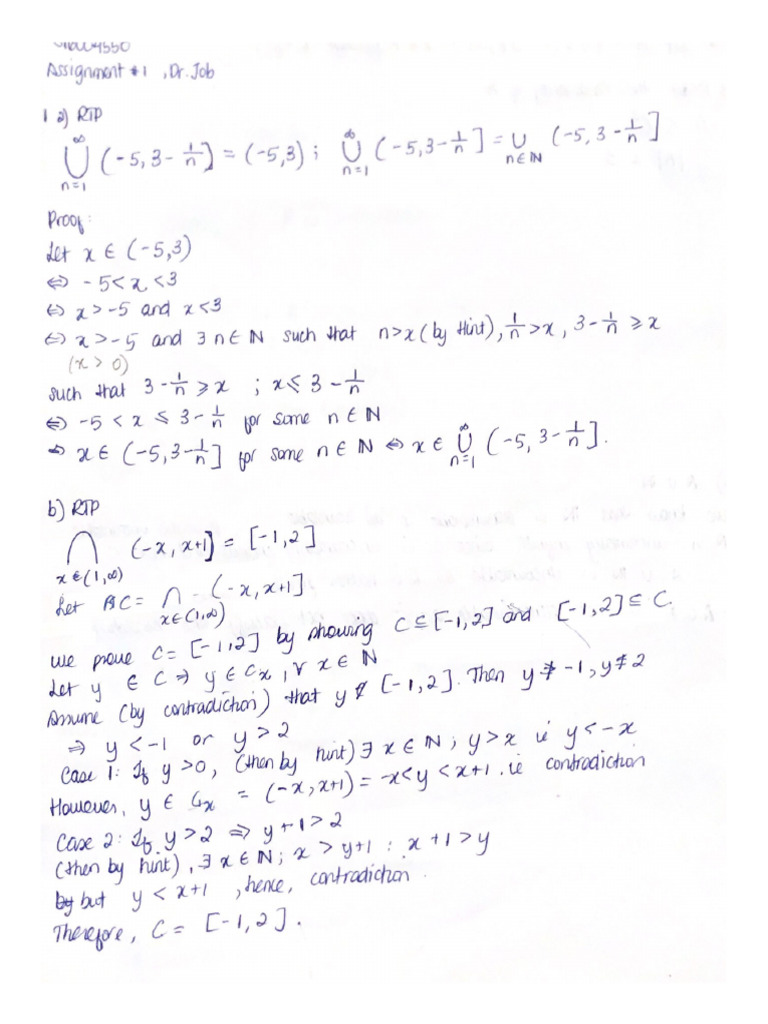 Assignment #1 , Dr. Job
1 a) RTP
∞⋃n=1 (-5, 3 - 1/n] = (-5,3) ; ∞⋃n=1 (-5, 3 - 1/n] = ∪n∈ℕ (-5, 3 - 1/n]
Proof:
Let x ∈ (-5,3)
⇔ -5 < x < 3
⇔ x > -5 and x < 3
⇔ x > -5 and ∃ n ∈ ℕ such that n > x (by Hint), 1/n > x, 3 - 1/n ⩾ x
(x > 0)
such that 3 - 1/n ⩾ x ; x ⩽ 3 - 1/n
⇔ -5 < x ⩽ 3 - 1/n for some n ∈ ℕ
⇒ x ∈ (-5, 3 - 1/n] for some n ∈ ℕ ⇔ x ∈ ∞⋃n=1 (-5, 3 - 1/n].
b) RTP
⋂x∈(1,∞) (-x, x+1] = [-1,2]
Let C = ∩x∈(1,∞) (-x, x+1]
we prove C = [-1,2] by showing C ⊆ [-1,2] and [-1,2] ⊆ C.
Let y ∈ C ⇒ y ∈ Cx, ∀ x ∈ ℕ
Assume (by contradiction) that y ∉ [-1,2]. Then y ≯ -1, y ≮ 2
⇒ y < -1 or y > 2
Case 1: If y > 0, (then by hint) ∃ x ∈ ℕ ; y > x ie y < -x
However, y ∈ Cx = (-x, x+1) = -x < y < x+1. ie contradiction
Case 2: If y > 2 ⇒ y + 1 > 2
(then by hint), ∃ x ∈ ℕ ; x > y+1 : x + 1 > y
but y < x+1 , hence, contradiction.
Therefore, C = [-1,2].